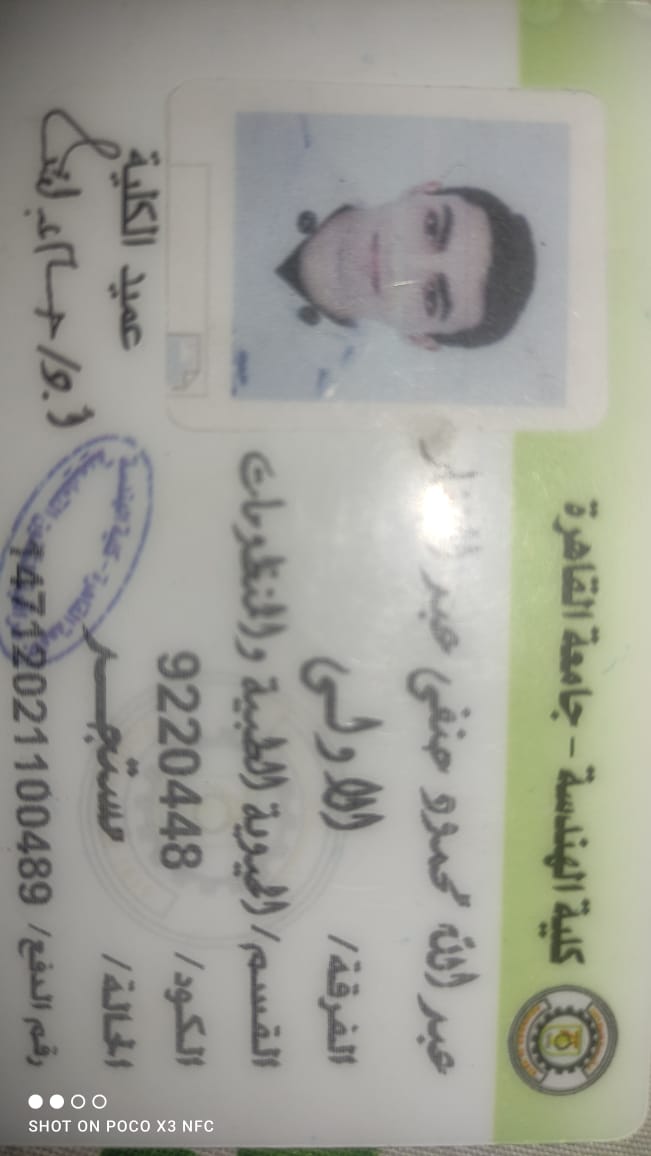 كلية الهندسة - جامعة القاهرة
عبد الله محمود حنفى عبد
الفرقة/ الاولى
القسم/ الحيوية الطبية والمنظومات
الكود/ 9220448
الحالة/ مستجد
رقم الدفع/ 14712021100489
عميد الكلية
SHOT ON POCO X3 NFC